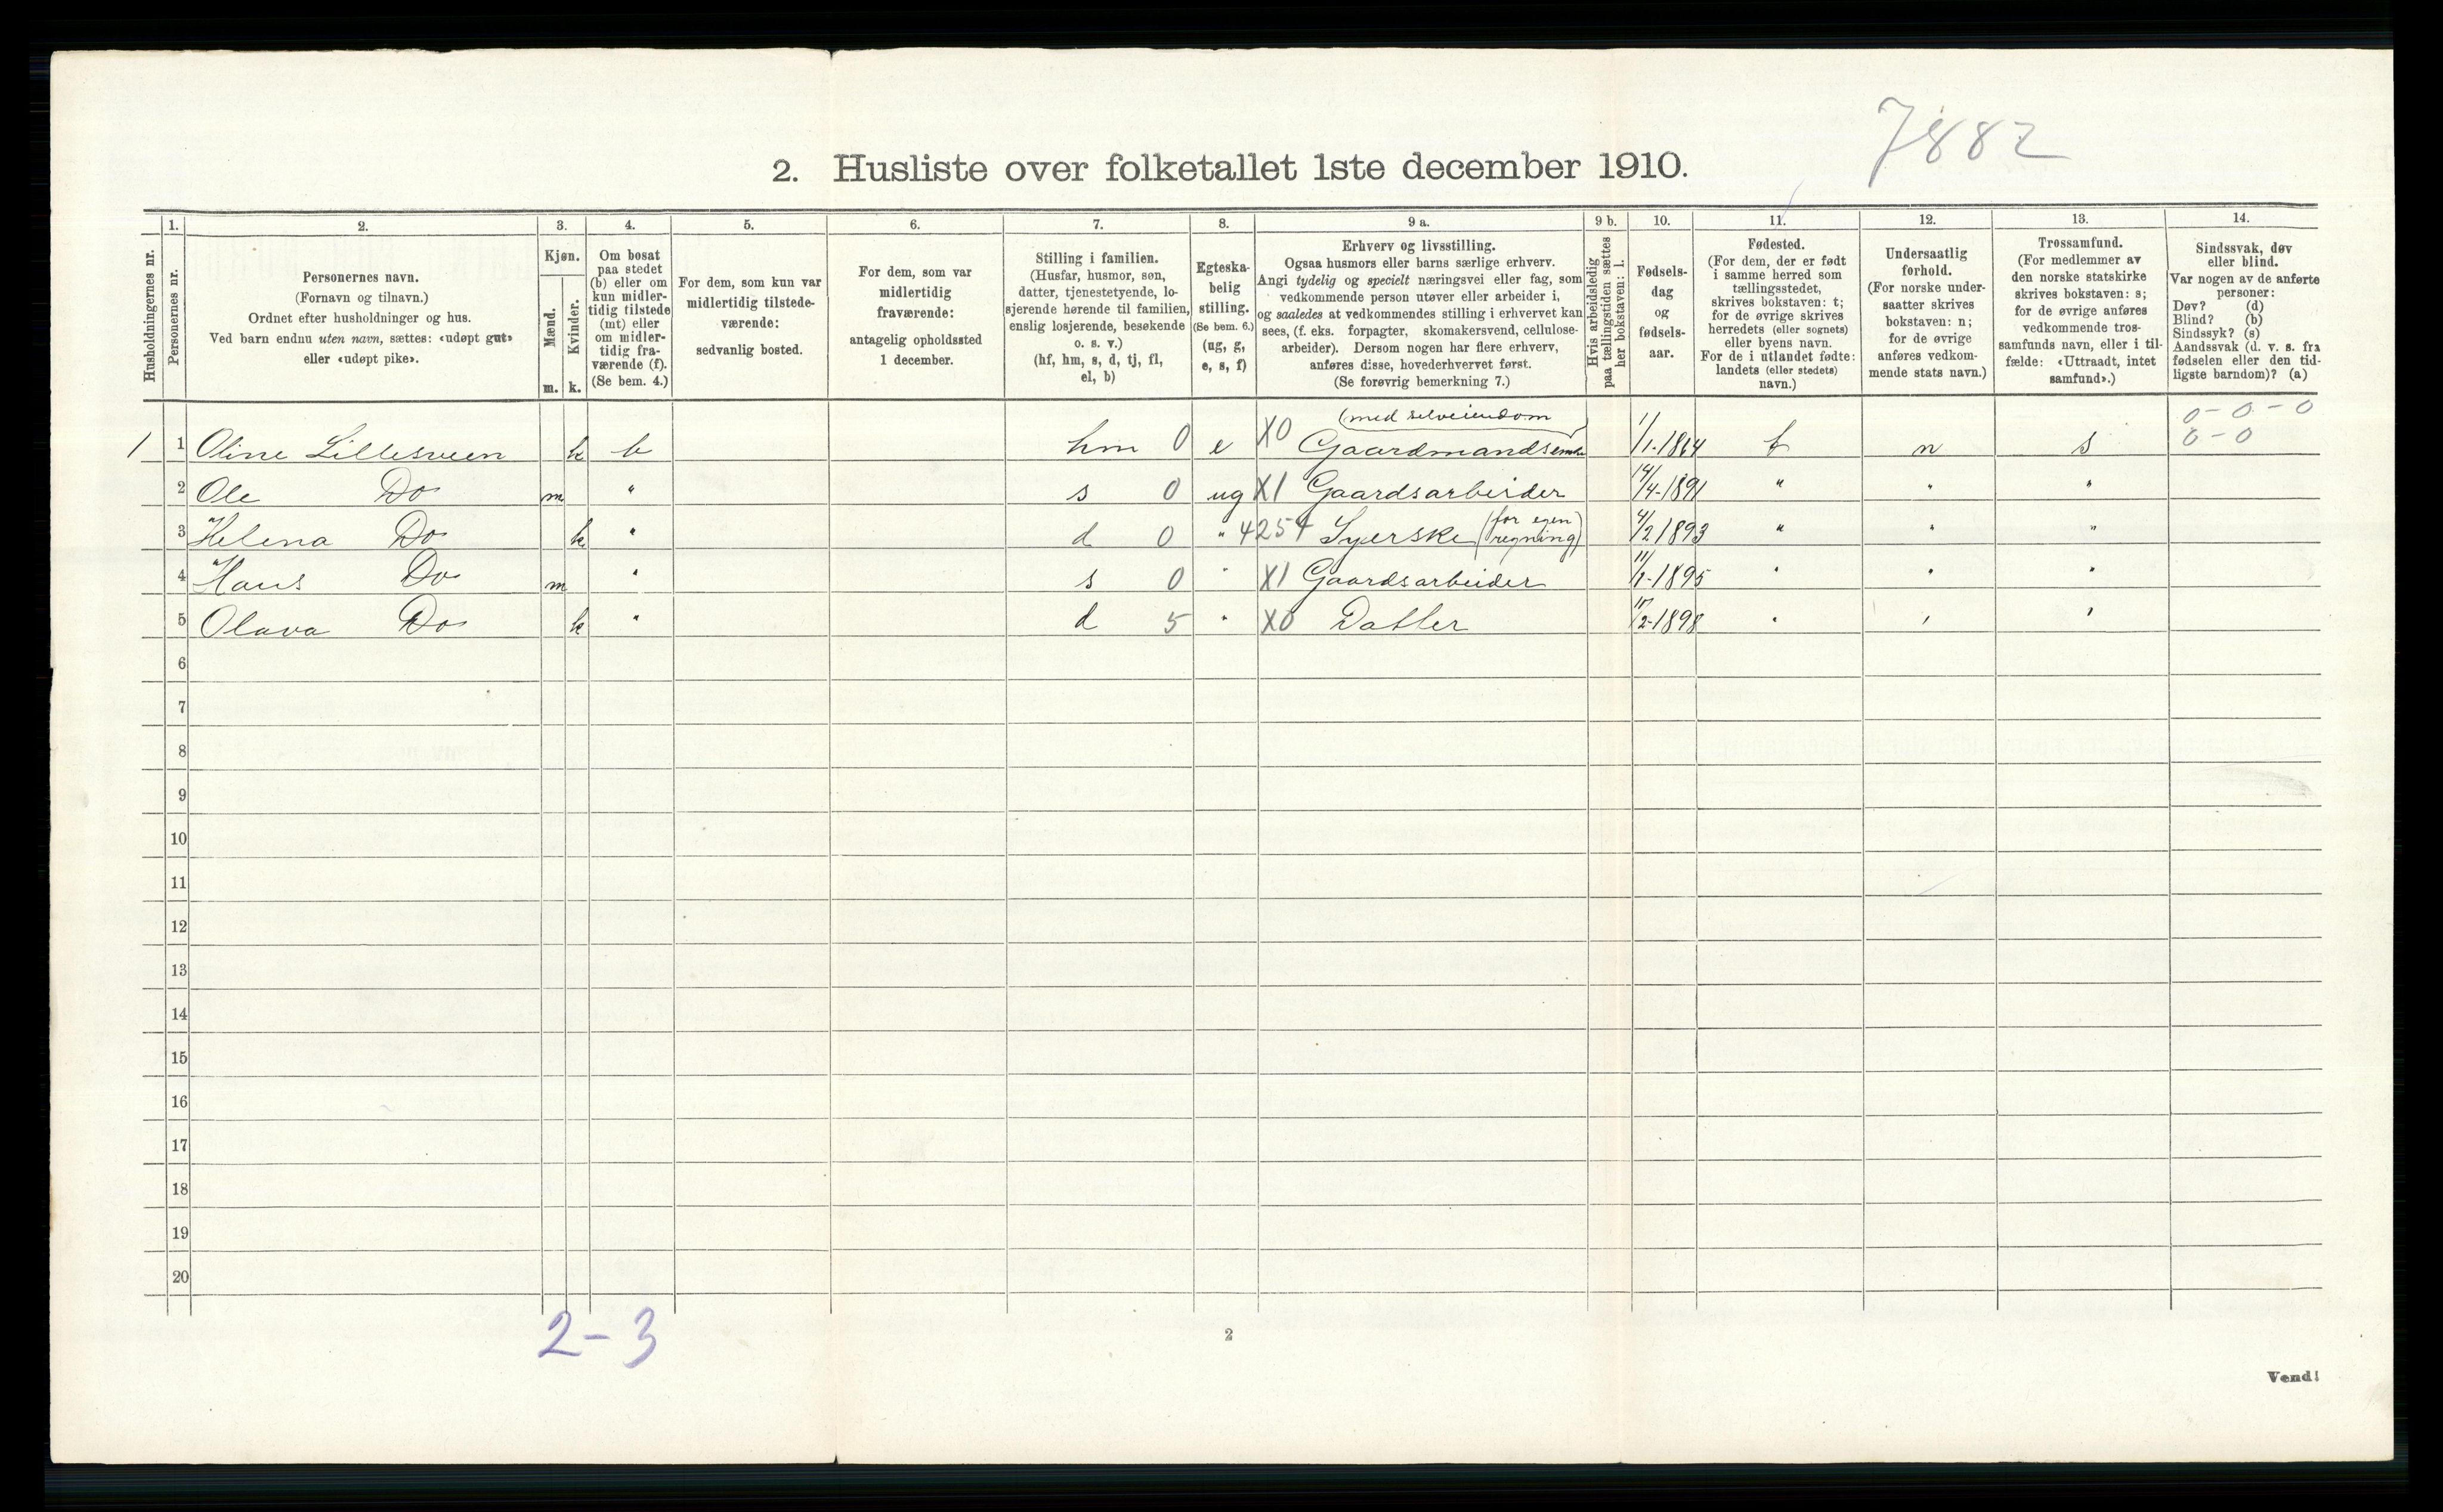 7882
2. Husliste over folketallet 1ste december 1910.
Husholdningernes nr.
1.
Personernes nr.
2.
Personernes navn.
(Fornavn og tilnavn.)
Ordnet efter husholdninger og hus.
Ved barn endnu uten navn, sættes: «udøpt gut»
eller «udøpt pike».
3.
Kjøn.
Mænd.
m.
Kvinder.
k.
4.
Om bosat
paa stedet
(b) eller om
kun midler-
tidig tilstede
(mt) eller
om midler-
tidig fra-
værende (f).
(Se bem. 4.)
5.
For dem, som kun var
midlertidig tilstede-
værende:
sedvanlig bosted.
6.
For dem, som var
midlertidig
fraværende:
antagelig opholdssted
1 december.
7.
Stilling i familien.
(Husfar, husmor, søn,
datter, tjenestetyende, lo-
sjerende hørende til familien,
enslig losjerende, besøkende
o. s. v.)
(hf, hm, s, d, tj, fl,
el, b)
8.
Egteska-
belig
stilling.
(Se bem. 6.)
(ug, g,
e, s, f)
9 a.
Erhverv og livsstilling.
Ogsaa husmors eller barns særlige erhverv.
Angi tydelig og specielt næringsvei eller fag, som
vedkommende person utøver eller arbeider i,
og saaledes at vedkommendes stilling i erhvervet kan
sees, (f. eks. forpagter, skomakersvend, cellulose-
arbeider). Dersom nogen har flere erhverv,
anføres disse, hovederhvervet først.
(Se forøvrig bemerkning 7.)
9 b.
Hvis arbeidsledig
paa tællingstiden sættes
her bokstaven: l.
10.
Fødsels-
dag
og
fødsels-
aar.
11.
Fødested.
(For dem, der er født
i samme herred som
tællingsstedet,
skrives bokstaven: t;
for de øvrige skrives
herredets (eller sognets)
eller byens navn.
For de i utlandet fødte:
landets (eller stedets)
navn.)
12.
Undersaatlig
forhold.
(For norske under-
saatter skrives
bokstaven: n;
for de øvrige
anføres vedkom-
mende stats navn.)
13.
Trossamfund.
(For medlemmer av
den norske statskirke
skrives bokstaven: s;
for de øvrige anføres
vedkommende tros-
samfunds navn, eller i til-
fælde: «Uttraadt, intet
samfund».)
14.
Sindssvak, døv
eller blind.
Var nogen av de anførte
personer:
Døv? (d)
Blind? (b)
Sindssyk? (s)
Aandssvak (d. v. s. fra
fødselen eller den tid-
ligste barndom)? (a)
(med selveiendom 0-0-0
1 1 Oline Lillesveen k b hm 0 e X0 Gaardmandsenke 1/1-1864 t n s 0-0
2 Ole Do m " s 0 ug X1 Gaardsarbeider 14/4-1891 " " "
3 Helena Do k " d 0 " 4254 Syerske (for egen regning) 4/2 1893 " " "
4 Hans Do m " s 0 " X1 Gaardsarbeider 11/1-1895 " " "
5 Olava Do k " d 5 " X0 Datter /2-1898 " " "
6
7
8
9
10
11
12
13
14
15
16
17
18
19
20
2-3
2
Vend!